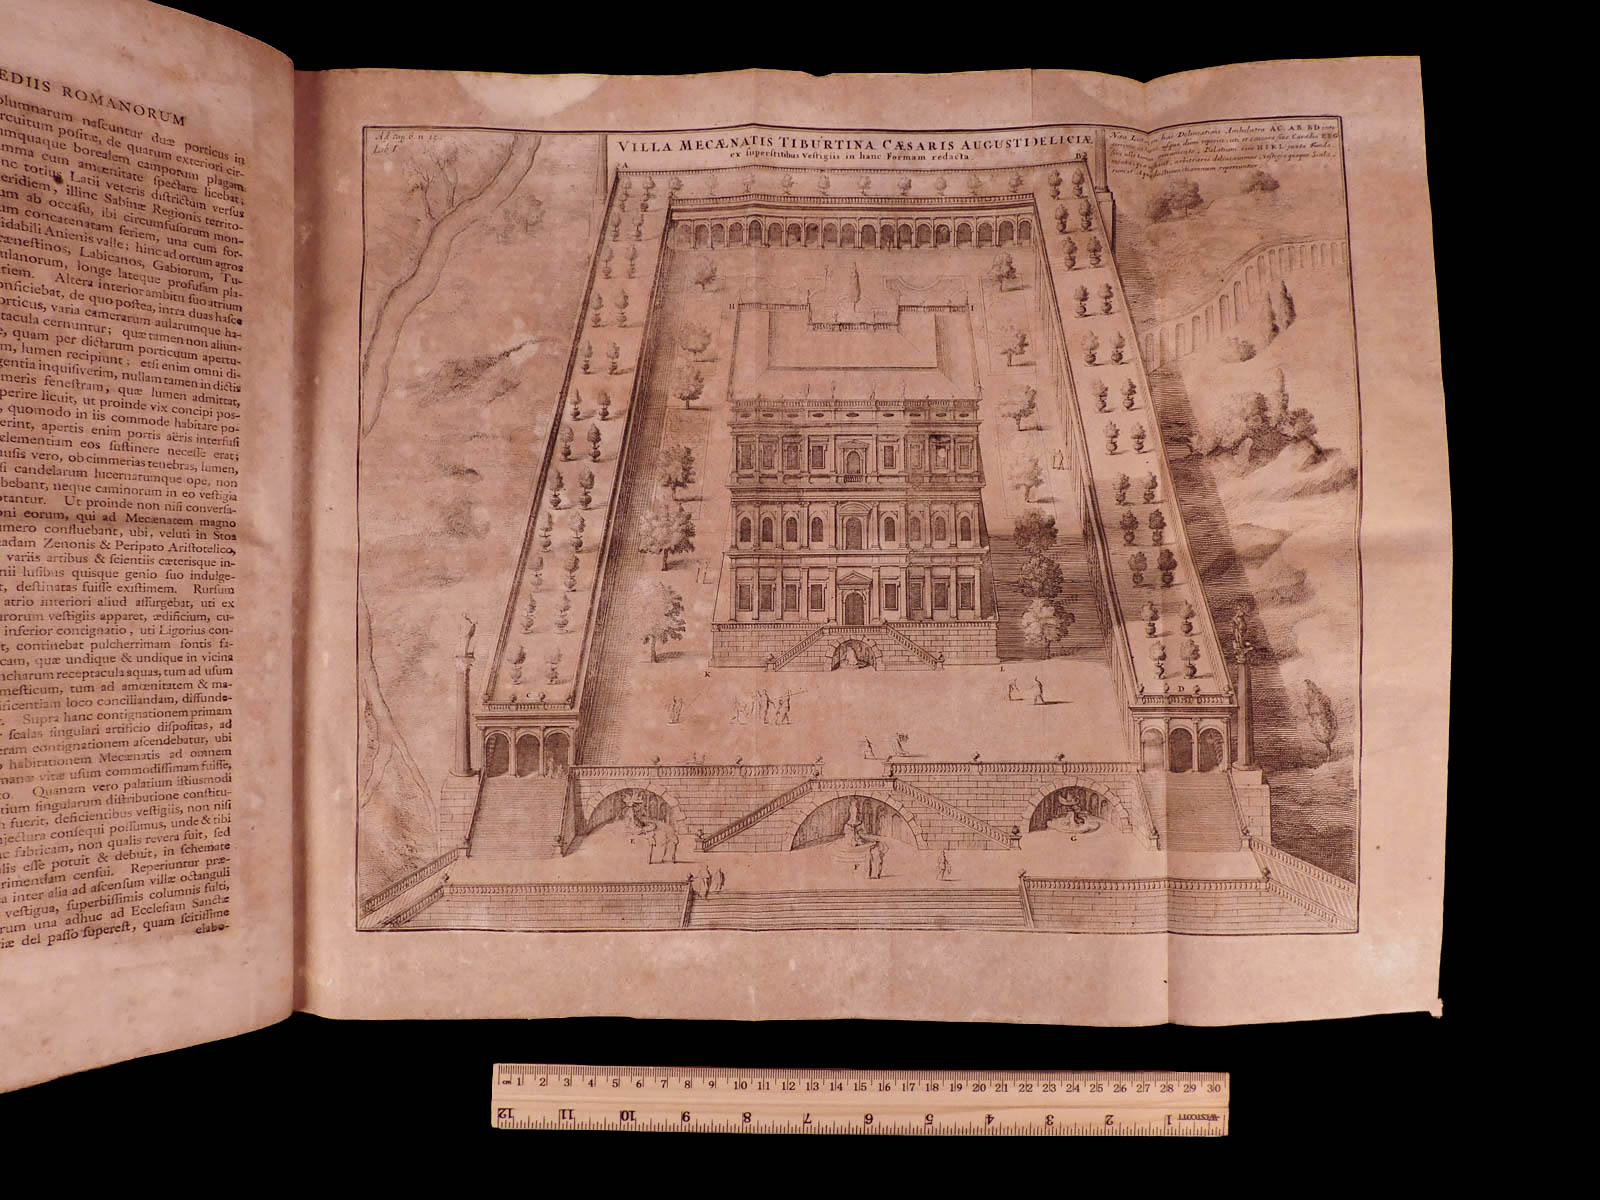 EDIIS ROMANORUM
olumnarum naſcuntur duæ porticus in
rcuitum poſitæ, de quarum exteriori cir-
umquaque borealem camporum plagam
mma cum amœnitate ſpectare licebat;
nc totius Latii veteris diſtrictum verſus
eridiem, illinc Sabinæ Regionis territo-
um ab occaſu, ibi circumfuſorum mon-
um concatenatam ſeriem, una cum for-
idabili Anienis valle; hinc ad ortum agros
æneſtinos, Labicanos, Gabiorum, Tu-
ulanorum, longe lateque profuſam pla-
tiem. Altera interior ambitu ſuo atrium
onficiebat, de quo poſtea, intra duas haſce
orticus, varia camerarum aularumque ha-
tacula cernuntur; quæ tamen non aliun-
e, quam per dictarum porticuum apertu-
m, lumen recipiunt; etſi enim omni di-
gentia inquiſiverim, nullam tamen in dictis
meris feneſtram, quæ lumen admittat,
perire licuit, ut proinde vix concipi poſ-
, quomodo in iis commode habitare po-
erint, apertis enim portis aëris interfuſi
clementiam eos ſuſtinere neceſſe erat;
uſis vero, ob cimmerias tenebras, lumen,
ſi candelarum lucernarumque ope, non
bebant, neque caminorum in eo veſtigia
otantur. Ut proinde non niſi converſa-
oni eorum, qui ad Mecænatem magno
umero confluebant, ubi, veluti in Stoa
adam Zenonis & Peripato Ariſtotelico,
variis artibus & ſcientiis cæteriſque in-
nii luſibus quiſque genio ſuo indulge-
t, deſtinatas fuiſſe exiſtimem. Rurſum
atrio interiori aliud aſſurgebat, uti ex
urorum veſtigiis apparet, ædificium, cu-
inferior concignatio, uti Ligorius con-
t, continebat pulcherrimam fontis fa-
cam, quæ undique & undique in vicina
ncharum receptacula aquas, tum ad uſum
meſticum, tum ad amœnitatem & ma-
ificentiam loco conciliandam, diffunde-
. Supra hanc contignationem primam
r ſcalas ſingulari artificio diſpoſitas, ad
eram contignationem aſcendebatur, ubi
o habitationem Mecænatis ad omnem
manæ vitæ uſum commodiſſimam fuiſſe,
to. Quanam vero palatium iſtiuſmodi
tium ſingularum diſtributione conſtitu-
n fuerit, deficientibus veſtigiis, non niſi
njectura conſequi poſſumus, unde & tibi
nc fabricam, non qualis revera fuit, ſed
alis eſſe potuit & debuit, in ſchemate
rimendam cenſui. Reperiuntur præ-
a inter alia ad aſcenſum villæ octanguli
veſtigua, ſuperbiſſimis columnis fulti,
rum una adhuc ad Eccleſiam Sanctæ
iæ del paſſo ſupereſt, quam ſcitiſſime
elabo-
Ad cap. 6. n. 15.
Lib. I
VILLA MECÆNATIS TIBURTINA CÆSARIS AUGUSTI DELICIÆ
ex ſuperſtitibus Veſtigiis in hanc Formam redacta.
A
B
H
I
K
L
C
D
E
F
G
cm 1 2 3 4 5 6 7 8 9 10 11 12 13 14 15 16 17 18 19 20 21 22 23 24 25 26 27 28 29 30
12 11 10 9 8 7 6 5 4 3 2 1 WESTCOTT